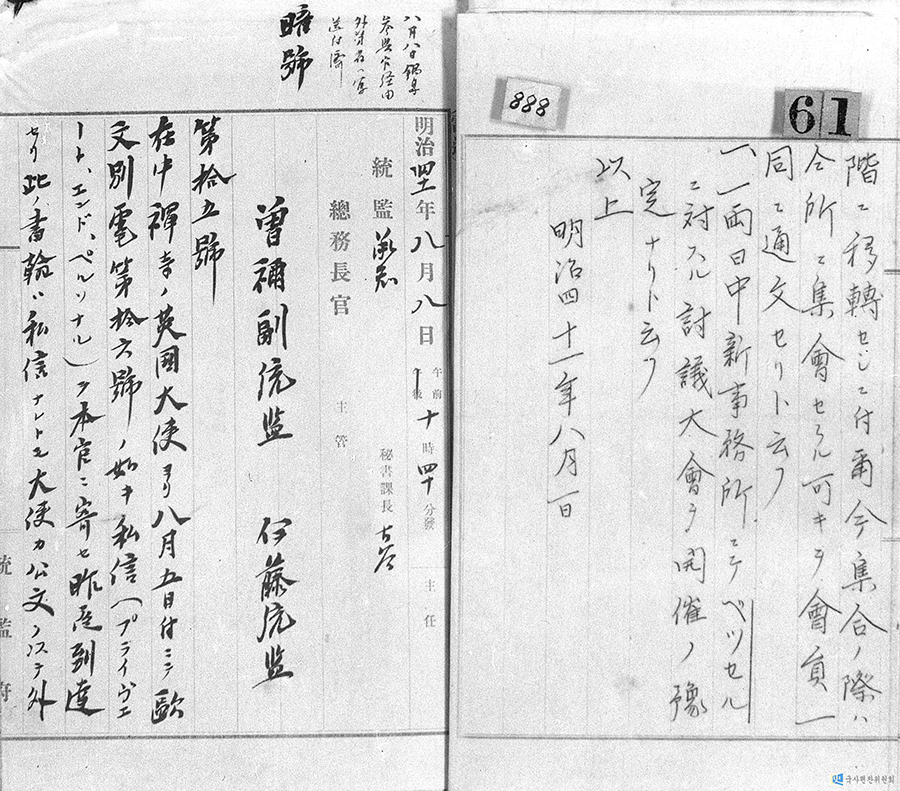 61
888
階ニ移轉セシニ付爾今集合ノ際ハ
仝所ニ集會セラル可キヲ會員一
同ニ通文セリト云フ
一、一兩日中新事務所ニテベツセル
ニ対スル討議大會ヲ開催ノ豫
定ナリト云フ
以上
明治四十一年八月一日
八月八日鍋島
参與官経由
外務省ヘ
送付濟
暗號
明治四十一年八月八日午前午後十時四十分發
主任
統監
秘書課長 古谷
總務長官
主管
曾禰副統監 伊藤統監
第拾五號
在中禪寺ノ英國大使ヨリ八月五日付ニテ歐
文別電第拾六號ノ如キ私信(プライヴエ
ート、エンド、ペルソナル)ヲ本官ニ寄セ昨夜到達
セリ此ノ書翰ハ私信ナレトモ大使カ公文ノ外
統監府
국사편찬위원회